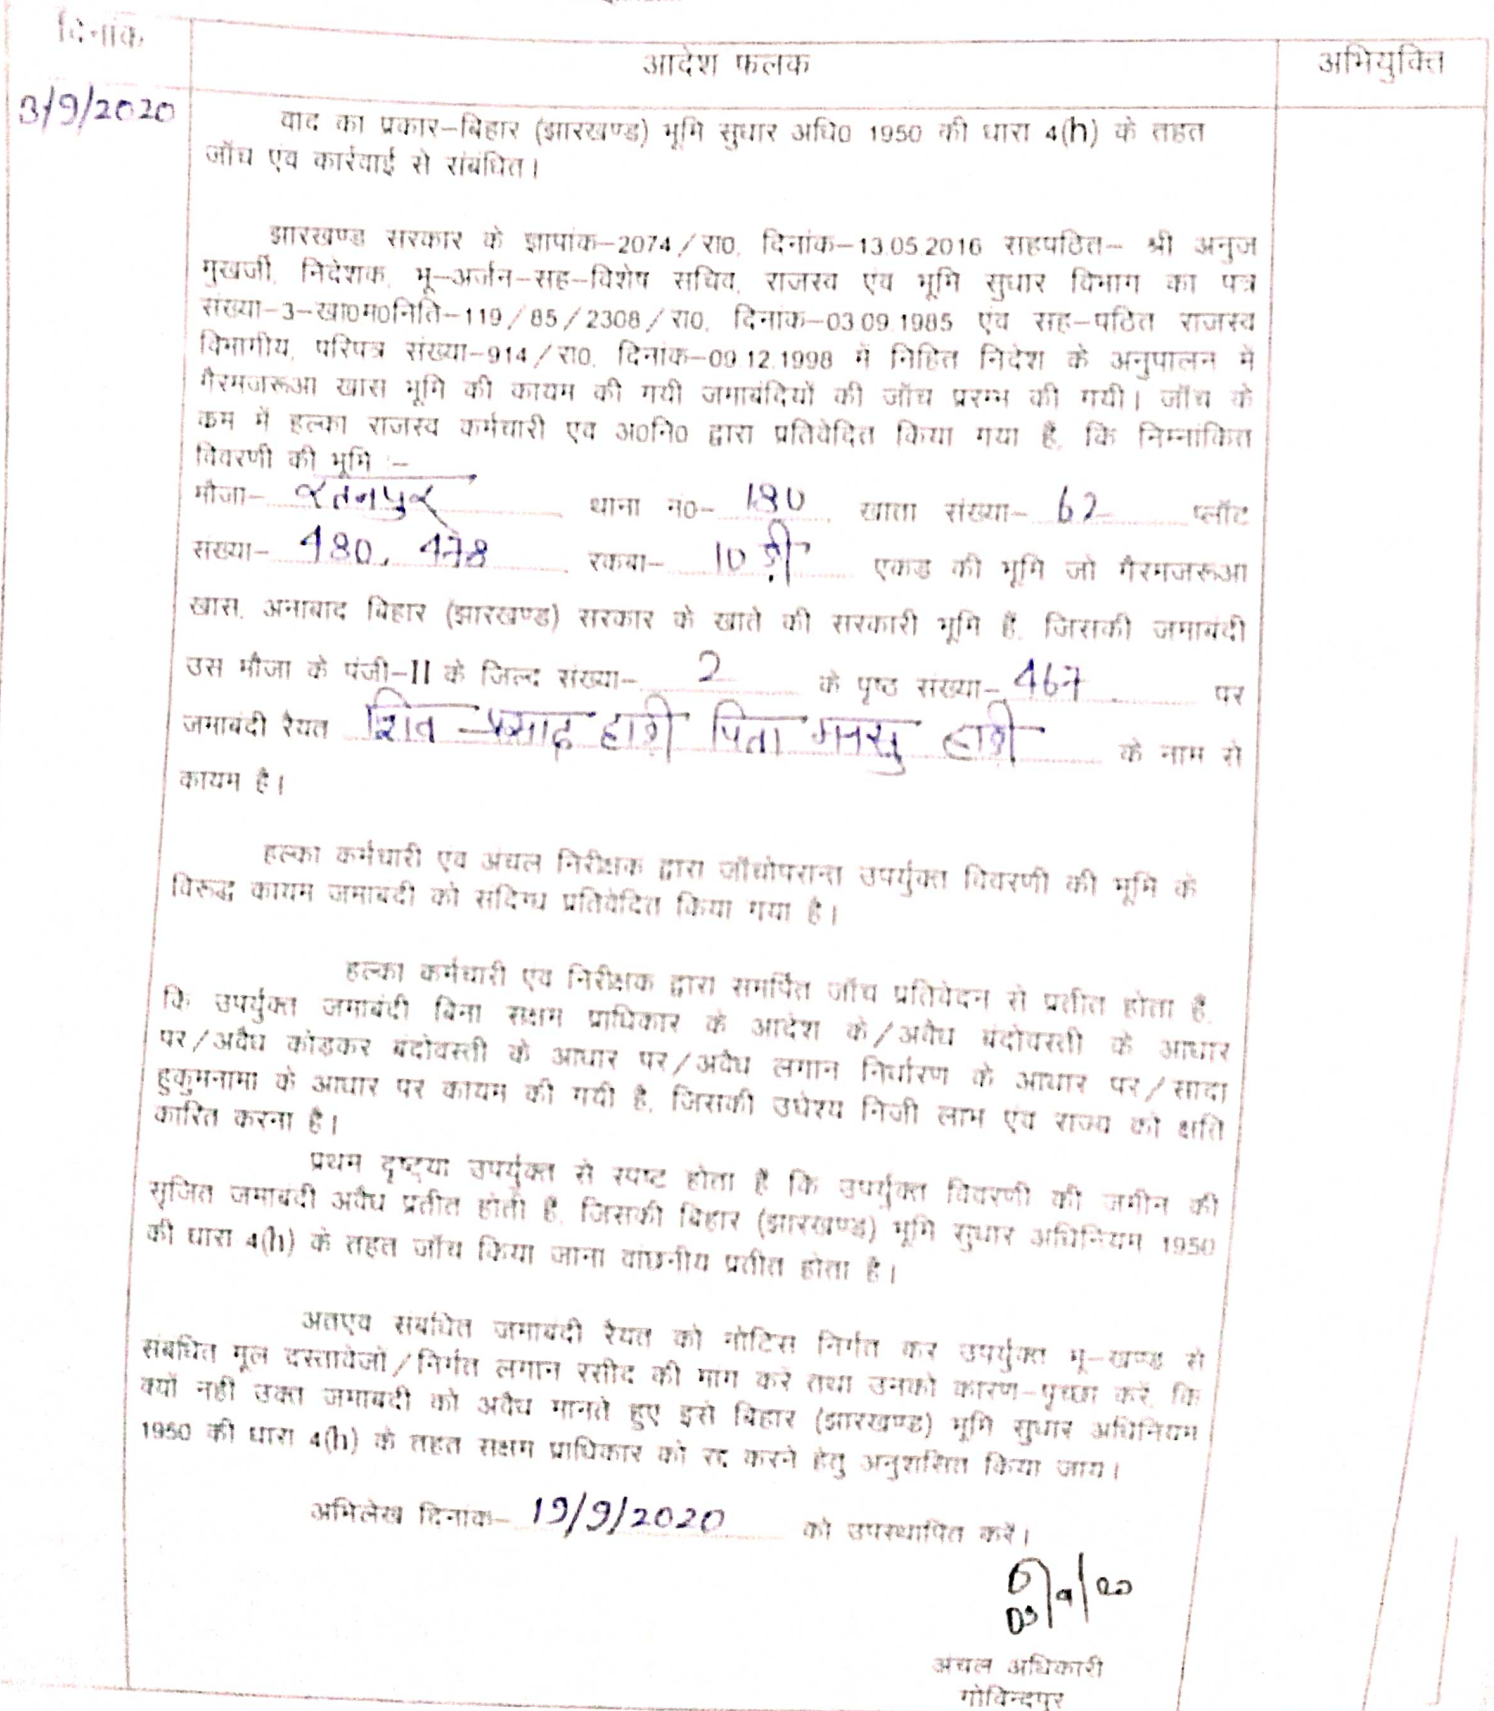 दिनांक
आदेश फलक
अभियुक्ति
3/9/2020
वाद का प्रकार–बिहार (झारखण्ड) भूमि सुधार अधि0 1950 की धारा 4(h) के तहत
जाँच एंव कार्रवाई से संबंधित।
झारखण्ड सरकार के ज्ञापांक–2074/रा0, दिनांक–13.05.2016 सहपठित– श्री अनुज
मुखर्जी, निदेशक, भू–अर्जन–सह–विशेष सचिव, राजस्व एंव भूमि सुधार विभाग का पत्र
संख्या–3–खा0म0निति–119/85/2308/रा0, दिनांक–03.09.1985 एंव सह–पठित राजस्व
विभागीय, परिपत्र संख्या–914/रा0, दिनांक–09.12.1998 में निहित निदेश के अनुपालन में
गैरमजरूआ खास भूमि की कायम की गयी जमाबंदियों की जाँच प्ररम्भ की गयी। जाँच के
कम में हल्का राजस्व कर्मचारी एंव अ0नि0 द्वारा प्रतिवेदित किया गया है, कि निम्नांकित
विवरणी की भूमि :–
मौजा– रतनपुर थाना नं0– 180 खाता संख्या– 62 प्लॉट
संख्या– 480, 478 रकबा– 10 डी एकड की भूमि जो गैरमजरूआ
खास, अनाबाद बिहार (झारखण्ड) सरकार के खाते की सरकारी भूमि हैं, जिसकी जमाबंदी
उस मौजा के पंजी–II के जिल्द संख्या– 2 के पृष्ठ संख्या– 467 पर
जमाबंदी रैयत शिव प्रसाद हाड़ी पिता मनसु हाड़ी के नाम से
कायम है।
हल्का कर्मचारी एंव अंचल निरीक्षक द्वारा जाँचोपरान्त उपर्युक्त विवरणी की भूमि के
विरूद्ध कायम जमाबंदी को संदिग्ध प्रतिवेदित किया गया है।
हल्का कर्मचारी एंव निरीक्षक द्वारा समर्पित जाँच प्रतिवेदन से प्रतीत होता है,
कि उपर्युक्त जमाबंदी बिना सक्षम प्राधिकार के आदेश के/अवैध बंदोवस्ती के आधार
पर/अवैध कोडकर बंदोवस्ती के आधार पर/अवैध लगान निर्धारण के आधार पर/सादा
हुकुमनामा के आधार पर कायम की गयी है, जिसकी उधेश्य निजी लाभ एंव राज्य को क्षति
कारित करना है।
प्रथम दृष्ट्या उपर्युक्त से स्पष्ट होता है कि उपर्युक्त विवरणी की जमीन की
सृजित जमाबंदी अवैध प्रतीत होती है, जिसकी बिहार (झारखण्ड) भूमि सुधार अधिनियम 1950
की धारा 4(h) के तहत जाँच किया जाना वांछनीय प्रतीत होता है।
अतएव संबंधित जमाबंदी रैयत को नोटिस निर्गत कर उपर्युक्त भू–खण्ड से
संबंधित मूल दस्तावेजों/निर्गत लगान रसीद की मांग करें तथा उनको कारण–पृच्छा करें, कि
क्यों नहीं उक्त जमाबंदी को अवैध मानते हुए इसे बिहार (झारखण्ड) भूमि सुधार अधिनियम
1950 की धारा 4(h) के तहत सक्षम प्राधिकार को रद्द करने हेतु अनुशंसित किया जाय।
अभिलेख दिनांक– 19/9/2020 को उपस्थापित करें।
03/9/20
अंचल अधिकारी
गोविन्दपुर